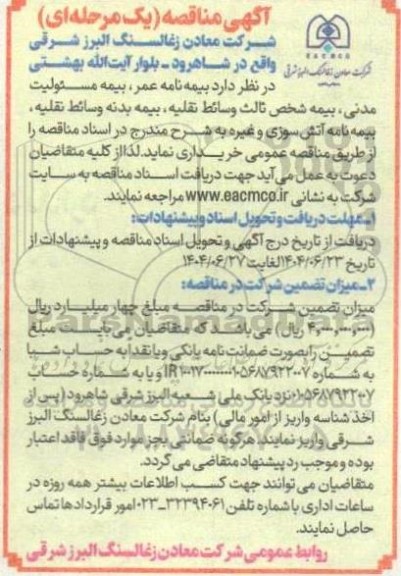 آگهی مناقصه (یک مرحله‌ای)
شرکت معادن زغالسنگ البرز شرقی
واقع در شاهرود ـ بلوار آیت‌الله بهشتی
EACMCO
شرکت معادن زغالسنگ البرز شرقی
در نظر دارد بیمه نامه عمر، بیمه مسئولیت
مدنی، بیمه شخص ثالث وسائط نقلیه، بیمه بدنه وسائط نقلیه،
بیمه نامه آتش سوزی و غیره به شرح مندرج در اسناد مناقصه را
از طریق مناقصه عمومی خریداری نماید. لذا از کلیه متقاضیان
دعوت به عمل می آید جهت دریافت اسناد مناقصه به سایت
شرکت به نشانی www.eacmco.ir مراجعه نمایند.
۱ـ مهلت دریافت و تحویل اسناد و پیشنهادات:
دریافت از تاریخ درج آگهی و تحویل اسناد مناقصه و پیشنهادات از
تاریخ ۱۴۰۴/۰۶/۲۳ لغایت ۱۴۰۴/۰۶/۲۷
۲ـ میزان تضمین شرکت در مناقصه:
میزان تضمین شرکت در مناقصه مبلغ چهار میلیارد ریال
(۴,۰۰۰,۰۰۰,۰۰۰ ریال) می باشد که متقاضیان می باید مبلغ
تضمین را بصورت ضمانت نامه بانکی و یا نقدا به حساب شبا
به شماره و یا به شماره حساب
۰۱۰۵۶۸۷۹۲۲۰۰۷ نزد بانک ملی شعبه البرز شرقی شاهرود (پس از
اخذ شناسه واریز از امور مالی) بنام شرکت معادن زغالسنگ البرز
شرقی واریز نمایند. هرگونه ضمانتی بجز موارد فوق فاقد اعتبار
بوده و موجب رد پیشنهاد متقاضی می گردد.
متقاضیان می توانند جهت کسب اطلاعات بیشتر همه روزه در
ساعات اداری با شماره تلفن ۳۲۳۹۴۰۶۱ـ۰۲۳ امور قراردادها تماس
حاصل نمایند.
روابط عمومی شرکت معادن زغالسنگ البرز شرقی